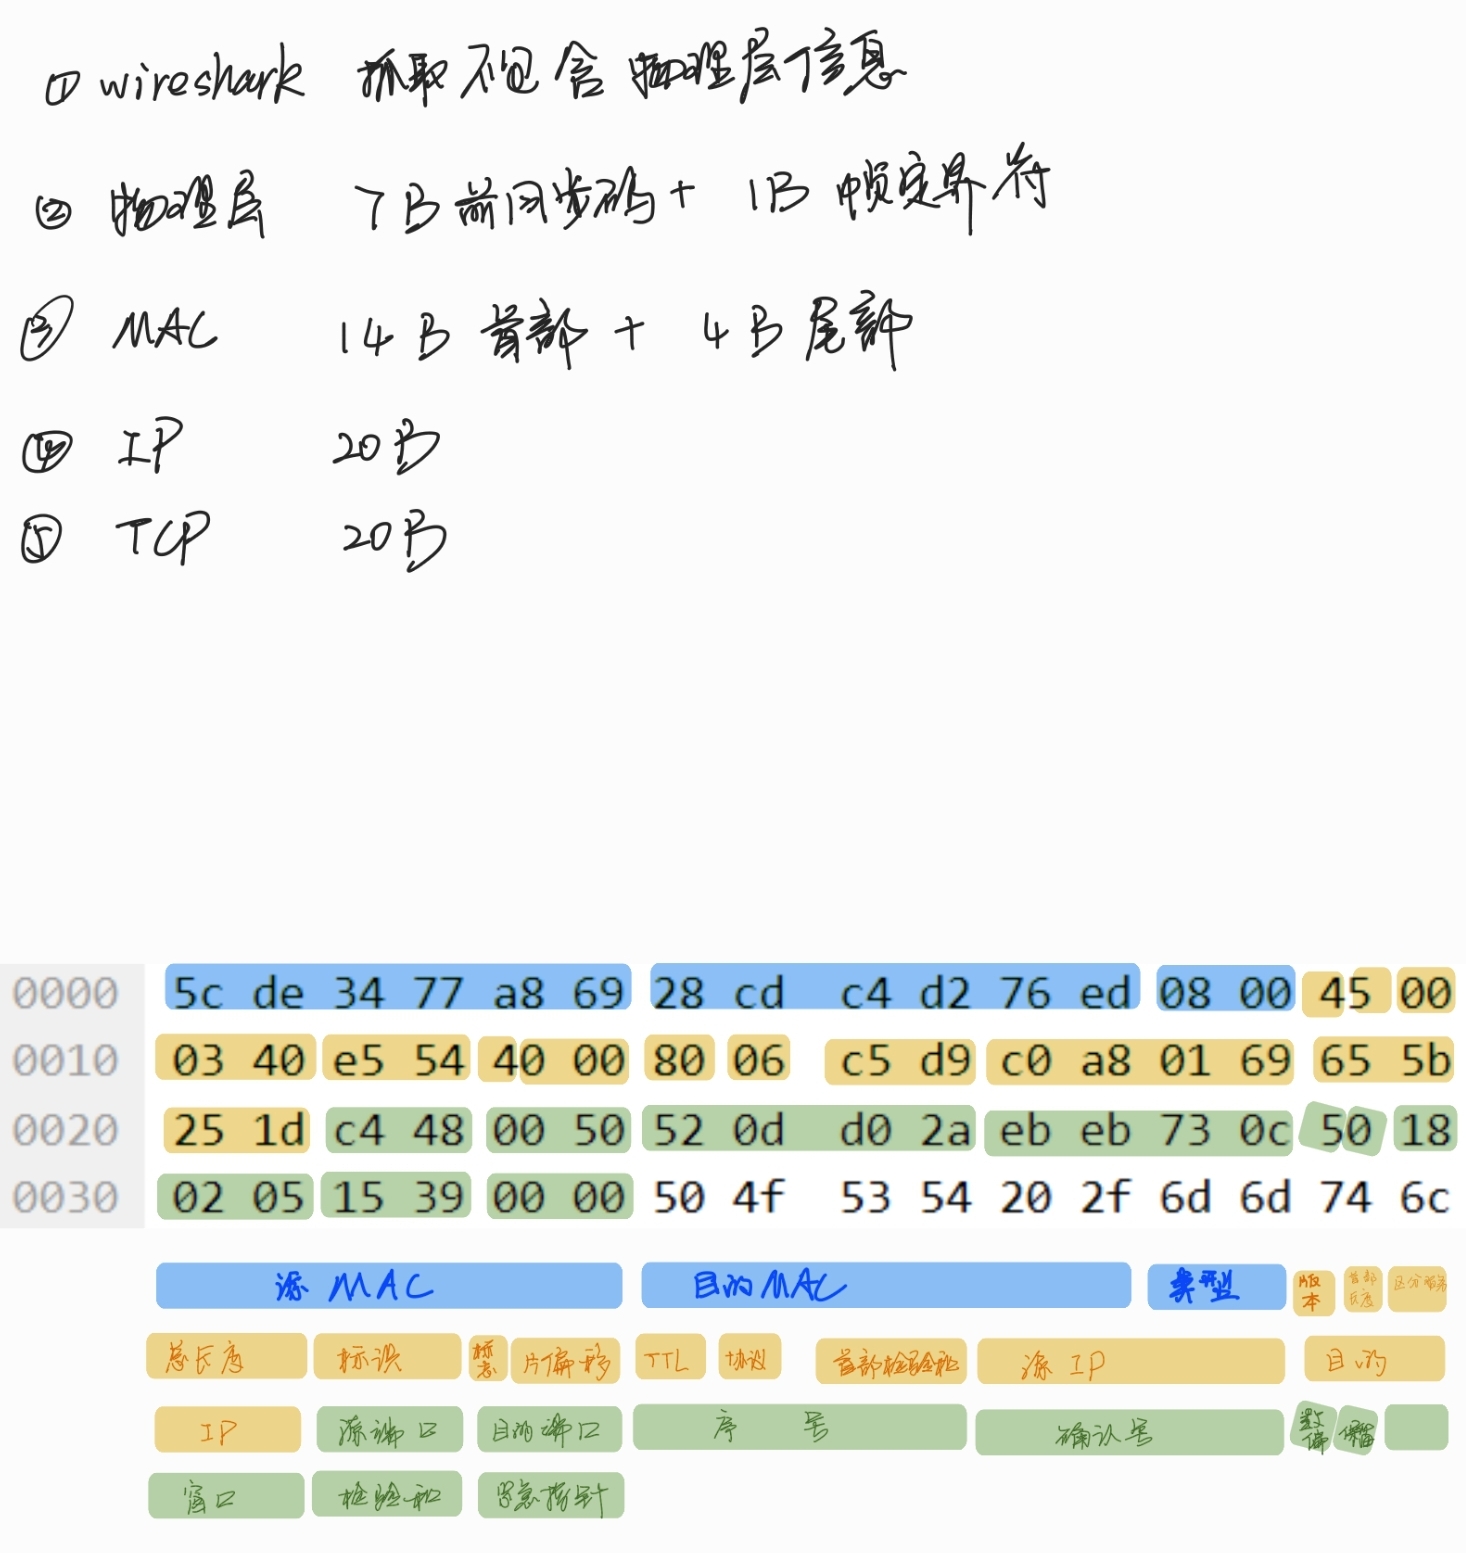 ① wireshark 抓取不包含物理层信息
② 物理层 7B前同步码 + 1B 帧定界符
③ MAC 14B 首部 + 4B 尾部
④ IP 20B
⑤ TCP 20B
0000 5c de 34 77 a8 69 28 cd c4 d2 76 ed 08 00 45 00
0010 03 40 e5 54 40 00 80 06 c5 d9 c0 a8 01 69 65 5b
0020 25 1d c4 48 00 50 52 0d d0 2a eb eb 73 0c 50 18
0030 02 05 15 39 00 00 50 4f 53 54 20 2f 6d 6d 74 6c
源 MAC 目的MAC 类型 版本 首部长度 区分服务
总长度 标识 标志 片偏移 TTL 协议 首部检验和 源 IP 目的
IP 源端口 目的端口 序 号 确认号 数偏 保留
窗口 检验和 紧急指针